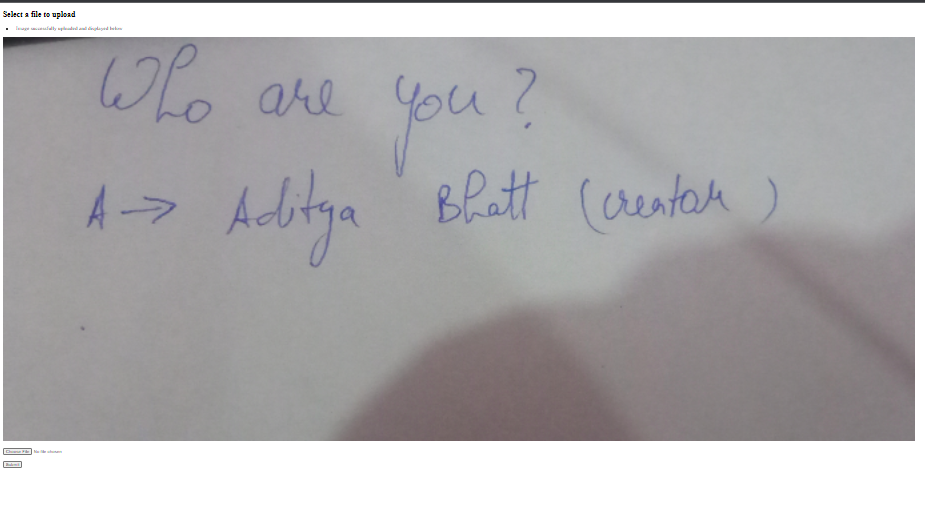 Select a file to upload
Image successfully uploaded and displayed below
Who are you?
A → Aditya Bhatt (creator)
Choose File No file chosen
Submit